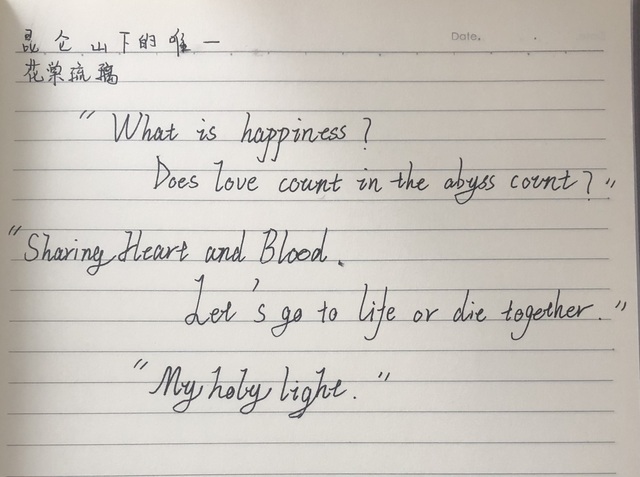 Date.
昆仑山下的唯一
花棠琉璃
"What is happiness?
Does love count in the abyss count?"
"Sharing Heart and Blood.
Let's go to life or die together."
"My holy light."